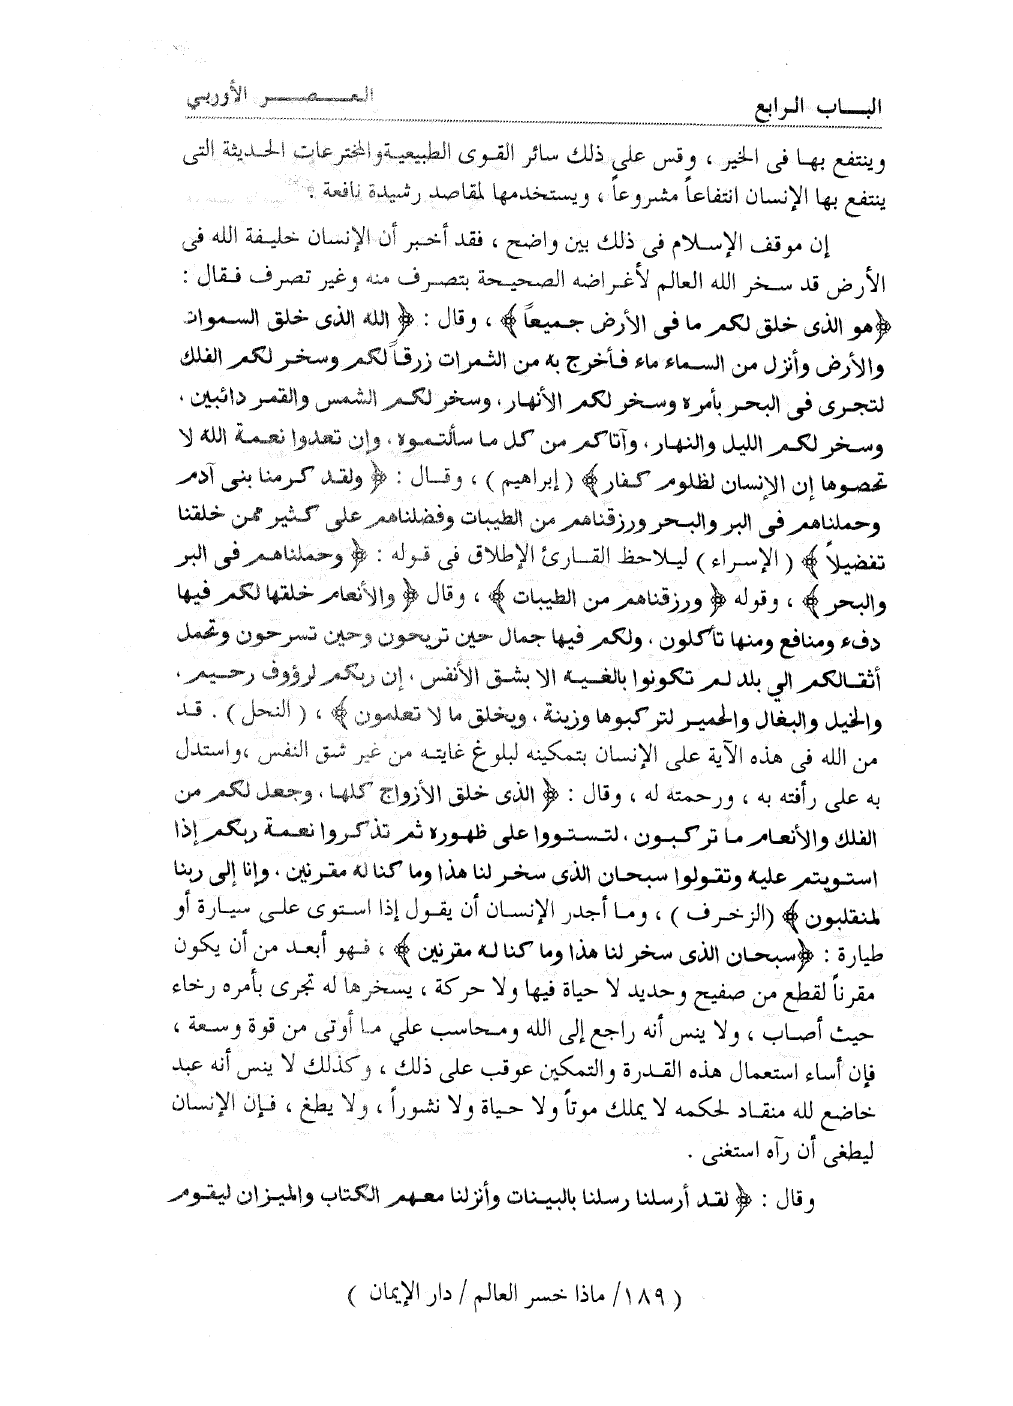 الباب الرابع
العصر الأوربي
وينتفع بها فى الخير ، وقس على ذلك سائر القوى الطبيعية والمخترعات الحديثة التى
ينتفع بها الإنسان انتفاعاً مشروعاً ، ويستخدمها لمقاصد رشيدة نافعة .
إن موقف الإسلام فى ذلك بين واضح ، فقد أخبر أن الإنسان خليفة الله فى
الأرض قد سخر الله العالم لأغراضه الصحيحة بتصرف منه وغير تصرف فقال :
﴿هو الذى خلق لكم ما فى الأرض جميعاً﴾ ، وقال : ﴿ الله الذى خلق السموات
والأرض وأنزل من السماء ماء فأخرج به من الثمرات زرقاً لكم وسخر لكم الفلك
لتجرى فى البحر بأمره وسخر لكم الأنهار، وسخر لكم الشمس والقمر دائبين ،
وسخر لكم الليل والنهار، وآتاكم من كل ما سألتموه، وإن تعدوا نعمة الله لا
تحصوها إن الإنسان لظلوم كفار﴾ ( إبراهيم ) ، وقال : ﴿ ولقد كرمنا بنى آدم
وحملناهم فى البر والبحر ورزقناهم من الطيبات وفضلناهم على كثير ممن خلقنا
تفضيلاً ﴾ ( الإسراء ) ليلاحظ القارئ الإطلاق فى قوله : ﴿ وحملناهم فى البر
والبحر ﴾ ، وقوله ﴿ ورزقناهم من الطيبات ﴾ ، وقال ﴿ والأنعام خلقها لكم فيها
دفء ومنافع ومنها تأكلون ، ولكم فيها جمال حين تريحون وحين تسرحون وتحمل
أثقالكم الي بلد لم تكونوا بالغيه الا بشق الأنفس ، إن ربكم لرؤوف رحيم ،
والخيل والبغال والحمير لتركبوها وزينة ، ويخلق ما لا تعلمون ﴾ ، ( النحل ) . قد
من الله فى هذه الآية على الإنسان بتمكينه لبلوغ غايته من غير شق النفس ،واستدل
به على رأفته به ، ورحمته له ، وقال : ﴿ الذى خلق الأزواج كلها ، وجعل لكم من
الفلك والأنعام ما تركبون ، لتستووا على ظهوره ثم تذكروا نعمة ربكم إذا
استويتم عليه وتقولوا سبحان الذى سخر لنا هذا وما كنا له مقرنين ، وإنا إلى ربنا
لمنقلبون ﴾ (الزخرف ) ، وما أجدر الإنسان أن يقول إذا استوى على سيارة أو
طيارة : ﴿سبحان الذى سخر لنا هذا وما كنا له مقرنين ﴾ ، فهو أبعد من أن يكون
مقرناً لقطع من صفيح وحديد لا حياة فيها ولا حركة ، يسخرها له تجرى بأمره رخاء
حيث أصاب ، ولا ينس أنه راجع إلى الله ومحاسب علي ما أوتى من قوة وسعة ،
فإن أساء استعمال هذه القدرة والتمكين عوقب على ذلك ، وكذلك لا ينس أنه عبد
خاضع لله منقاد لحكمه لا يملك موتاً ولا حياة ولا نشوراً ، ولا يطغ ، فإن الإنسان
ليطغى أن رآه استغنى .
وقال : ﴿ لقد أرسلنا رسلنا بالبينات وأنزلنا معهم الكتاب والميزان ليقوم
( ١٨٩/ ماذا خسر العالم / دار الإيمان )